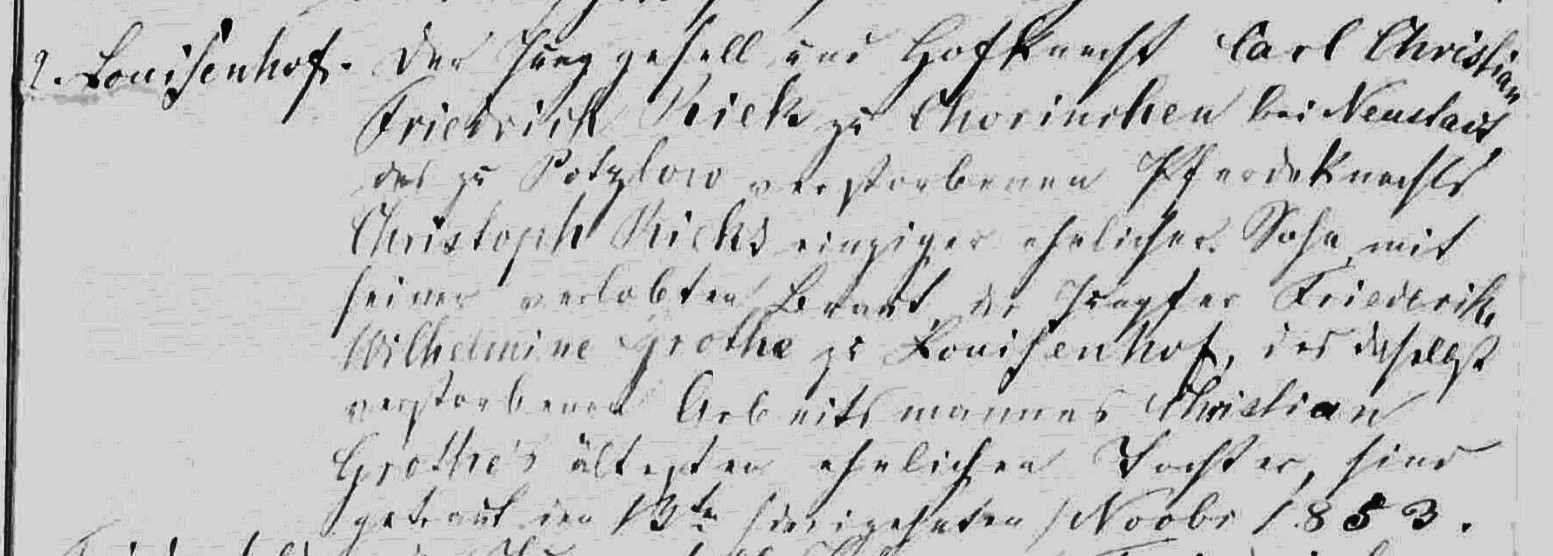 2. Louisenhof. Der Junggesell und Hofknecht Carl Christian
Friedrich Kiek zu Chorinchen bei Neustadt
des zu Potzlow verstorbenen Pferdeknechts
Christoph Kieks einziger ehelicher Sohn, mit
seiner verlobten Braut, der Jungfer Friederike
Wilhelmine Grothe zu Louisenhof, des daselbst
verstorbenen Arbeitsmannes Christian
Grothe's ältesten ehelichen Tochter, sind
getraut den 13ten /dreizehnten/ Novbr 1853.